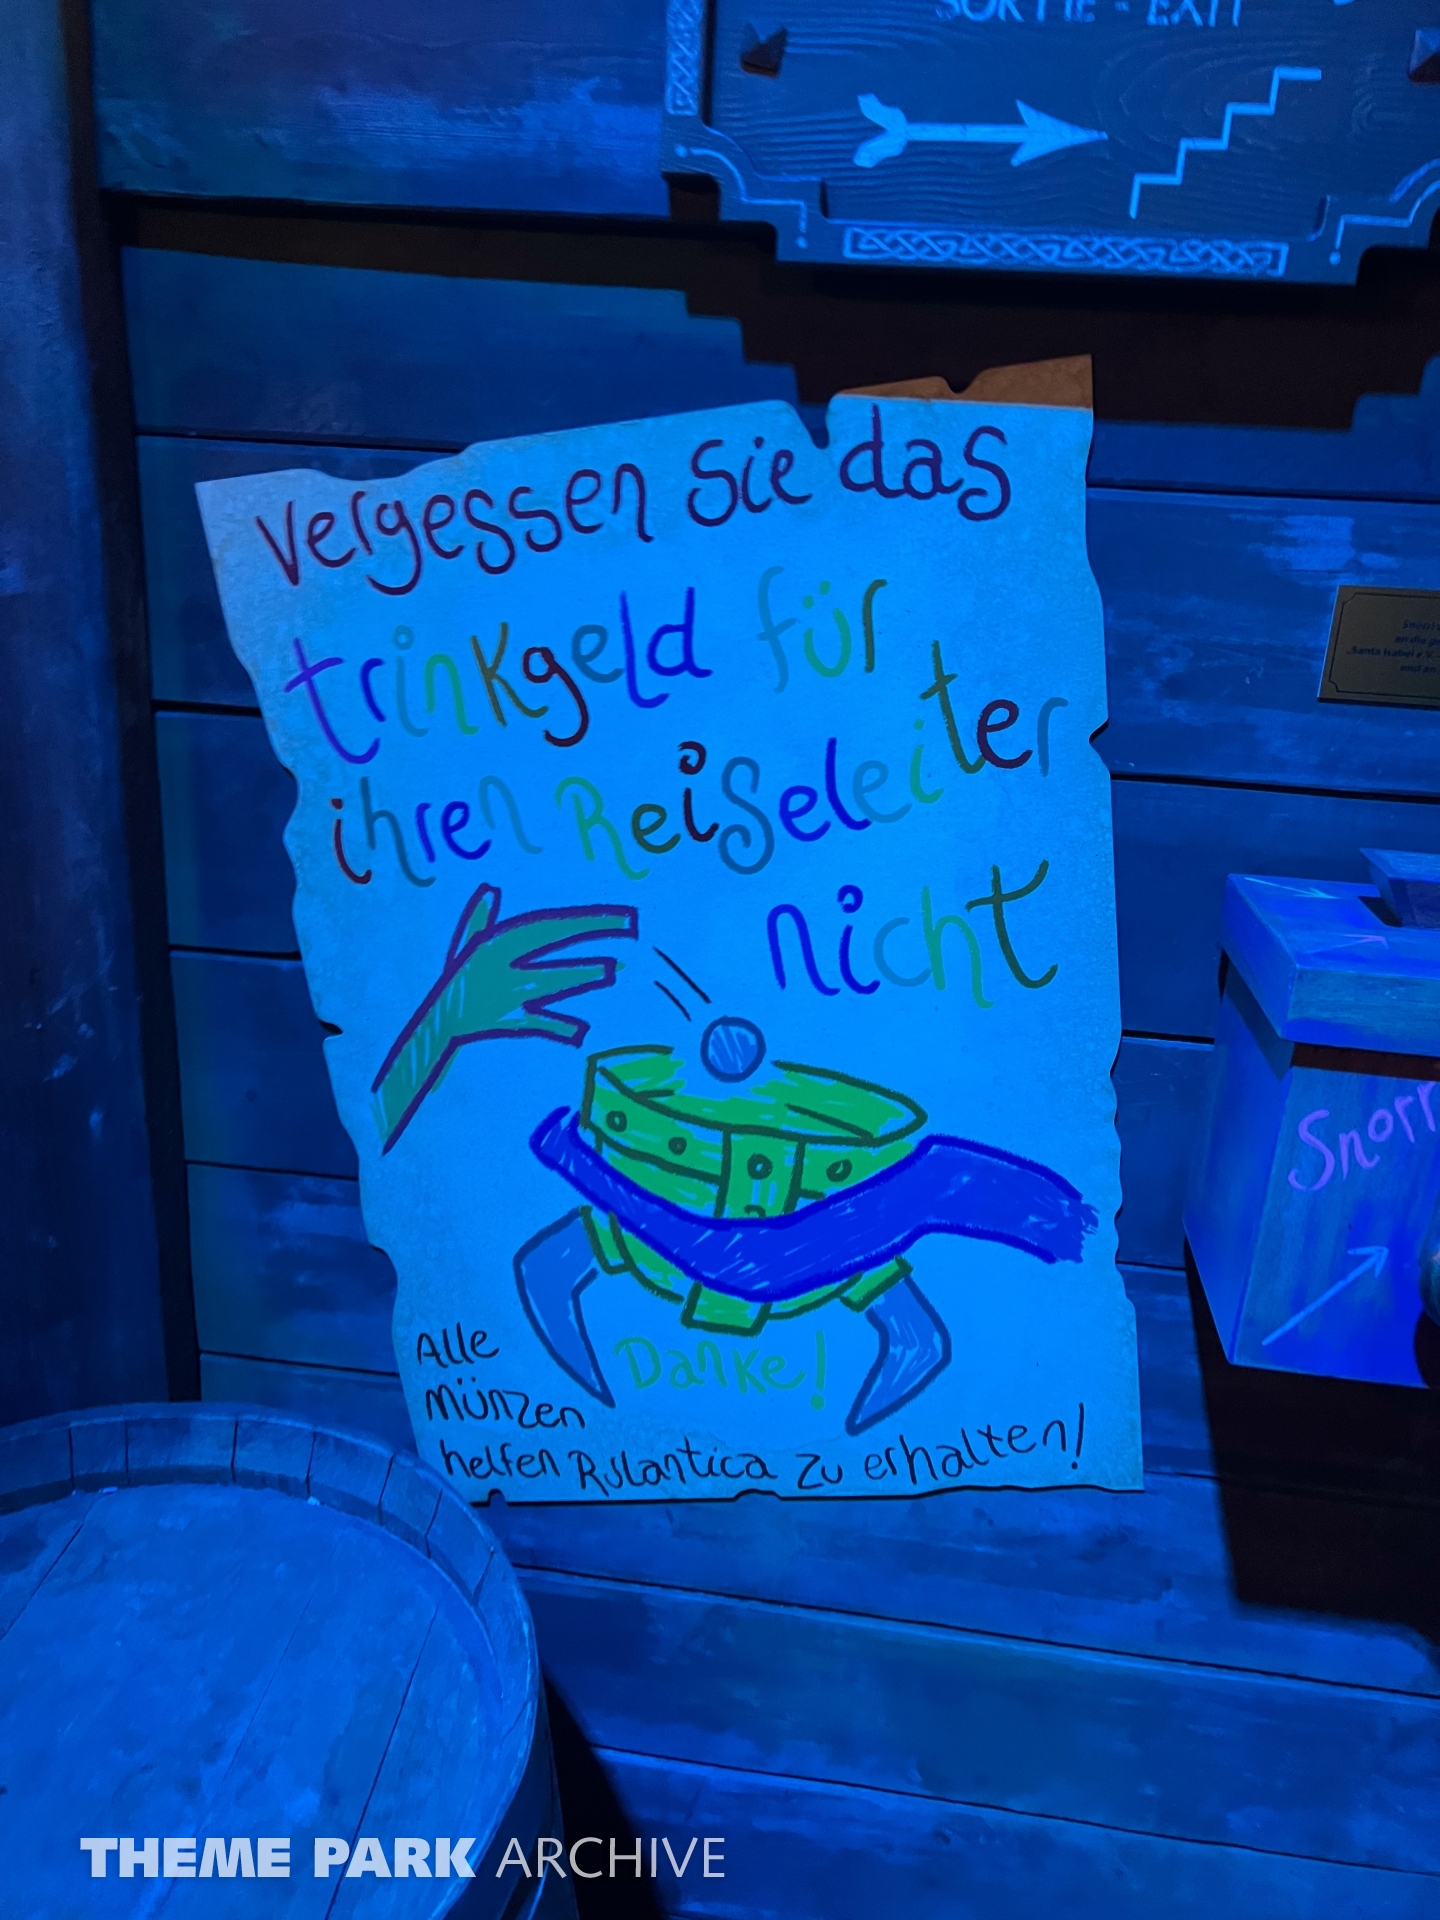 SORTIE - EXIT
Vergessen Sie das
trinkgeld für
ihren Reiseleiter
nicht
Danke!
Alle
Münzen
helfen Rulantica zu erhalten!
Snorr
„Santa Isabel e.V.
und an
THEME PARK ARCHIVE